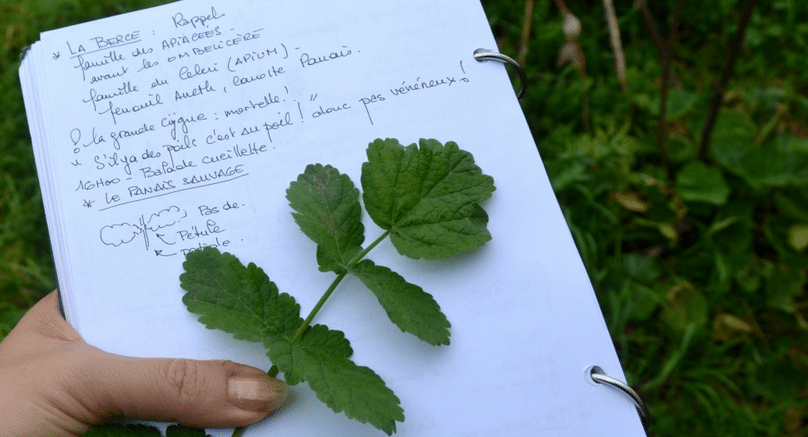 * LA BERCE : Rappel
famille des APIACEES -
avant les OMBELICÈRE
famille du Celeri (APIUM) -
fenouil Aneth, carotte Panais.
la grande cigue : mortelle !
"S'il y a des poils c'est au poil !" donc pas vénéneux !
16H00 - Balade cueillette.
* LE PANAIS SAUVAGE
Pas de
Pétule